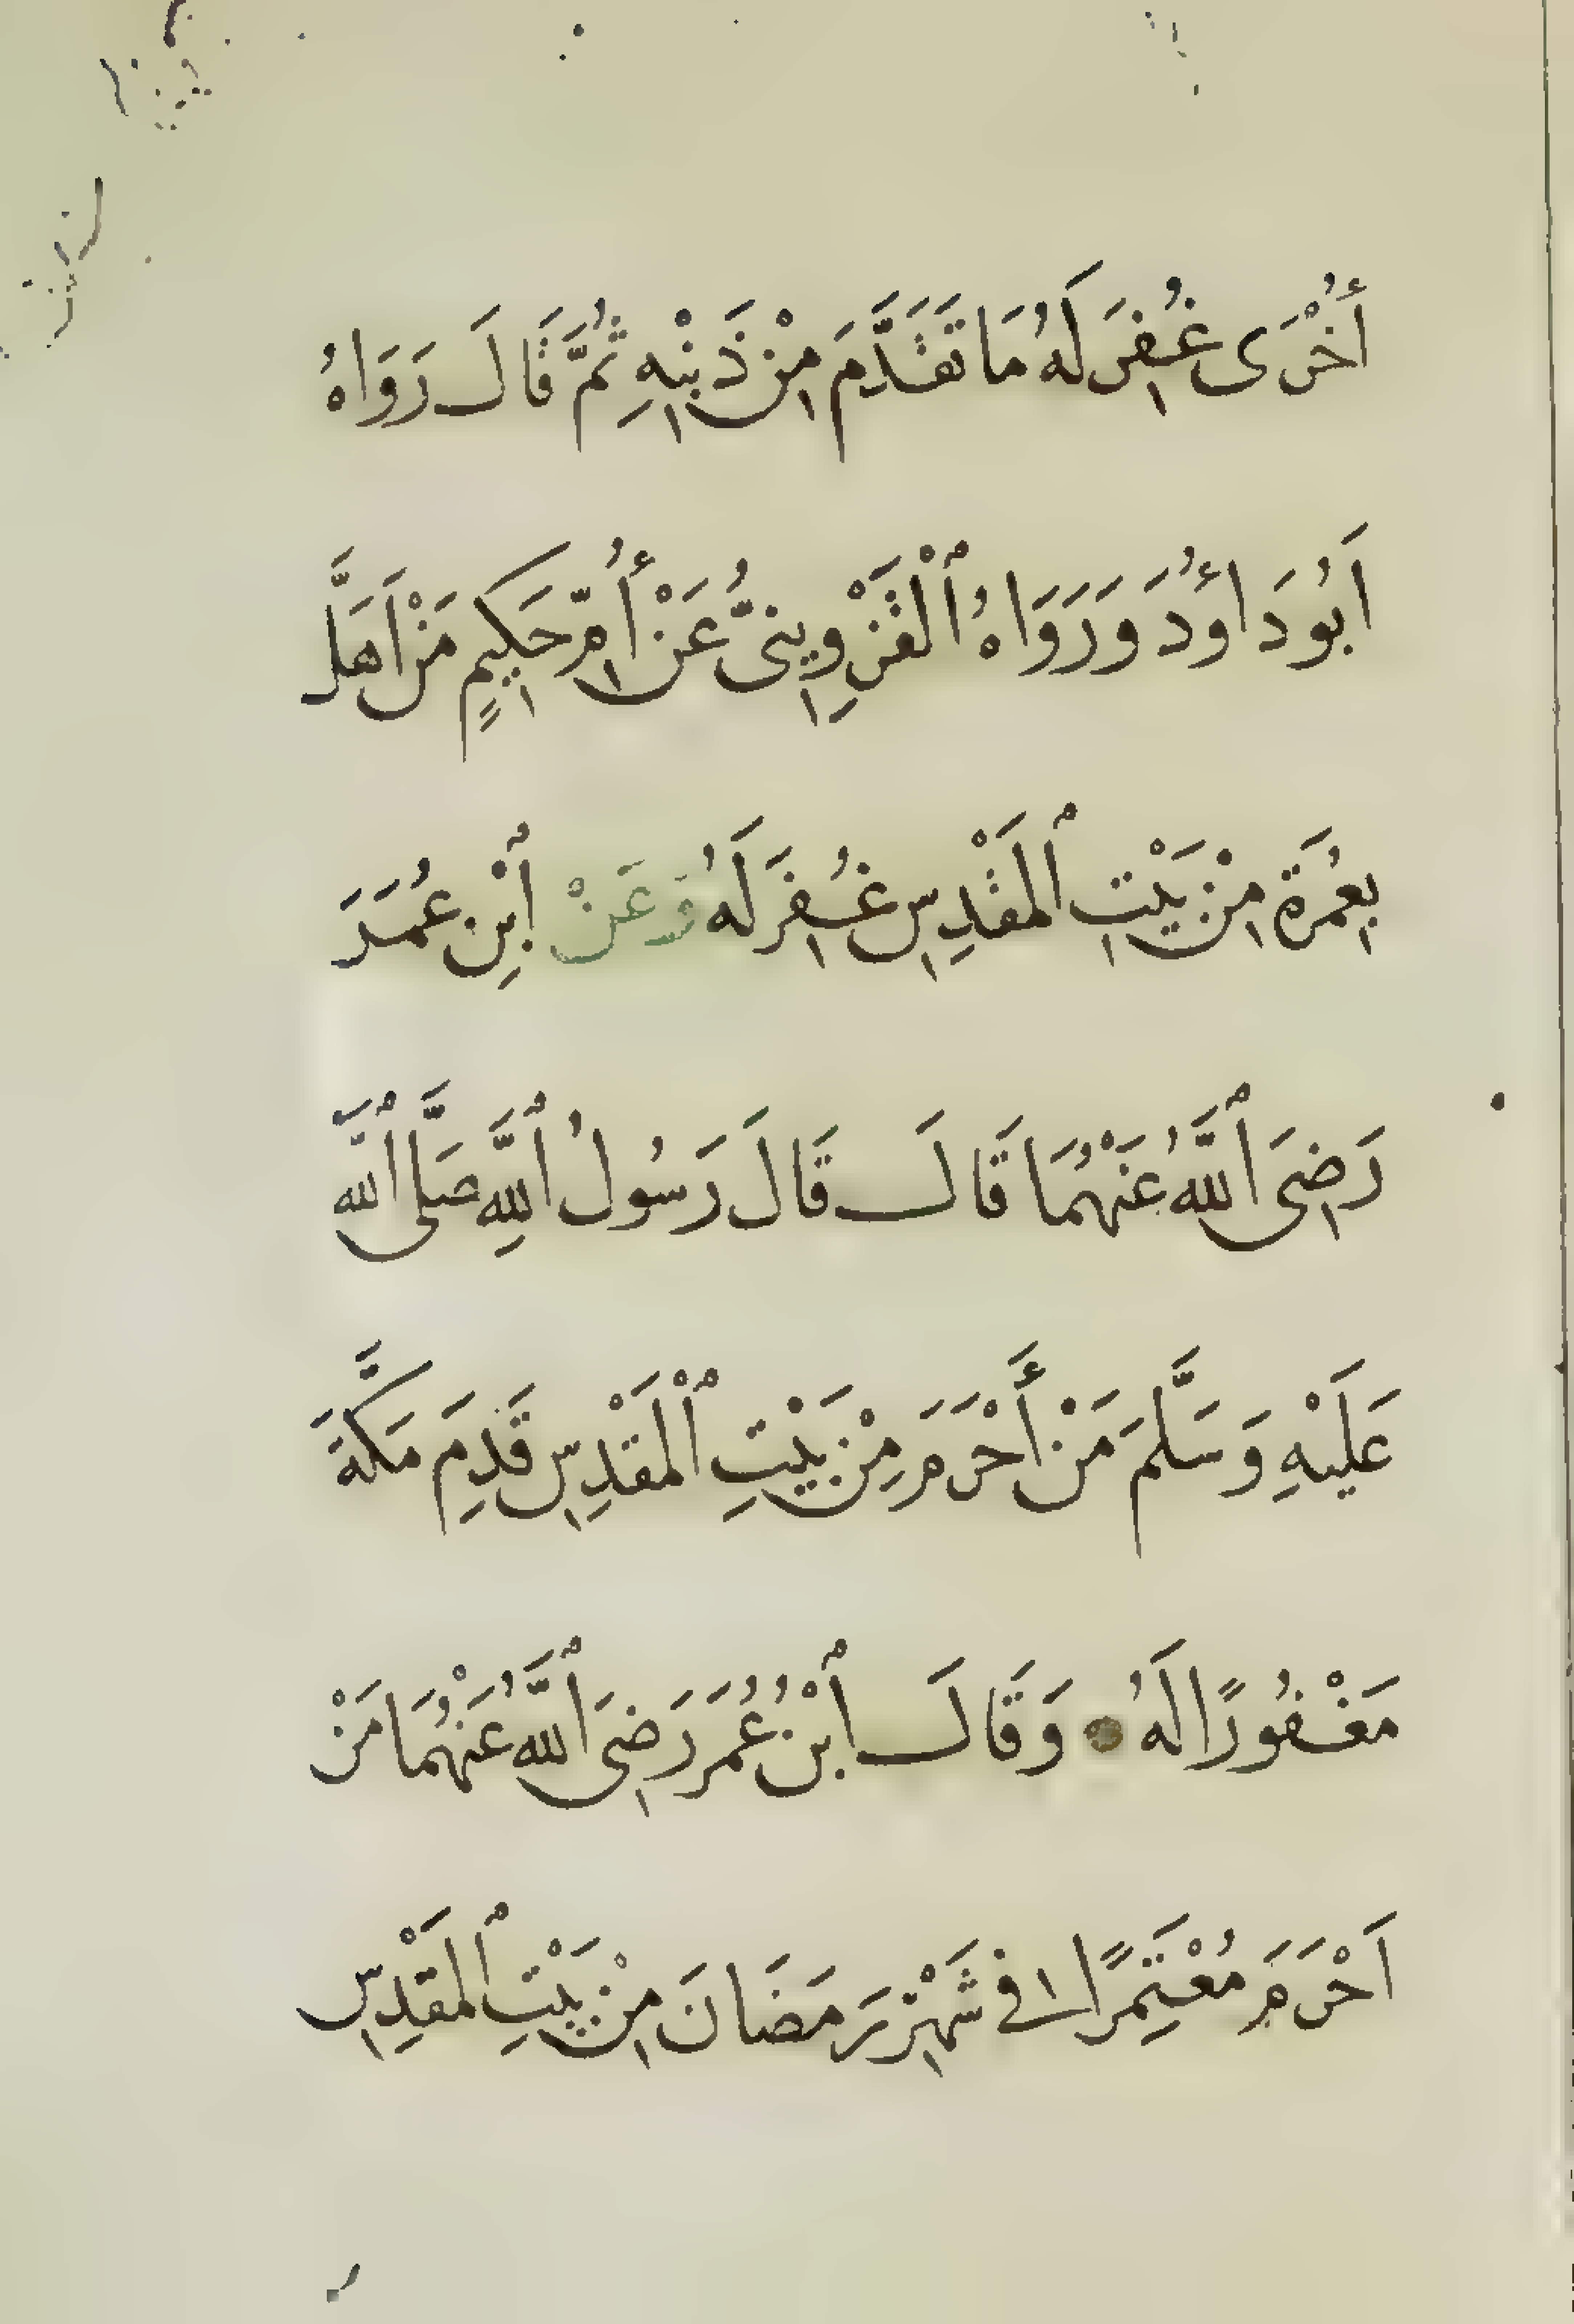 أُخْرَى غُفِرَ لَهُ مَا تَقَدَّمَ مِنْ ذَنْبِهِ ثُمَّ قَالَ رَوَاهُ
اَبُو دَاوُدَ وَرَوَاهُ ٱلْقَزْوِينِىُّ عَنْ أُمِّ حَكِيمٍ مَنْ اَهَلَّ
بِعُمْرَةٍ مِنْ بَيْتِ ٱلمَقْدِسِ غُفِرَ لَهُ وَعَنْ ٱبْنِ عُمَرَ
رَضِىَ ٱللَّهُ عَنْهُمَا قَالَ قَالَ رَسُولُ ٱللَّهِ صَلَّى ٱللَّه
عَلَيْهِ وَسَلَّمَ مَنْ أَحْرَمَ مِنْ بَيْتِ ٱلْمَقْدِسِ قَدِمَ مَكَّةَ
مَغْفُورًا لَهُ وَقَالَ ٱبْنُ عُمَرَ رَضِىَ ٱللَّهُ عَنْهُمَا مَنْ
اَحْرَمَ مُعْتَمِرًا فى شَهْرِ رَمَضَانَ مِنْ بَيْتِ ٱلمَقْدِسِ